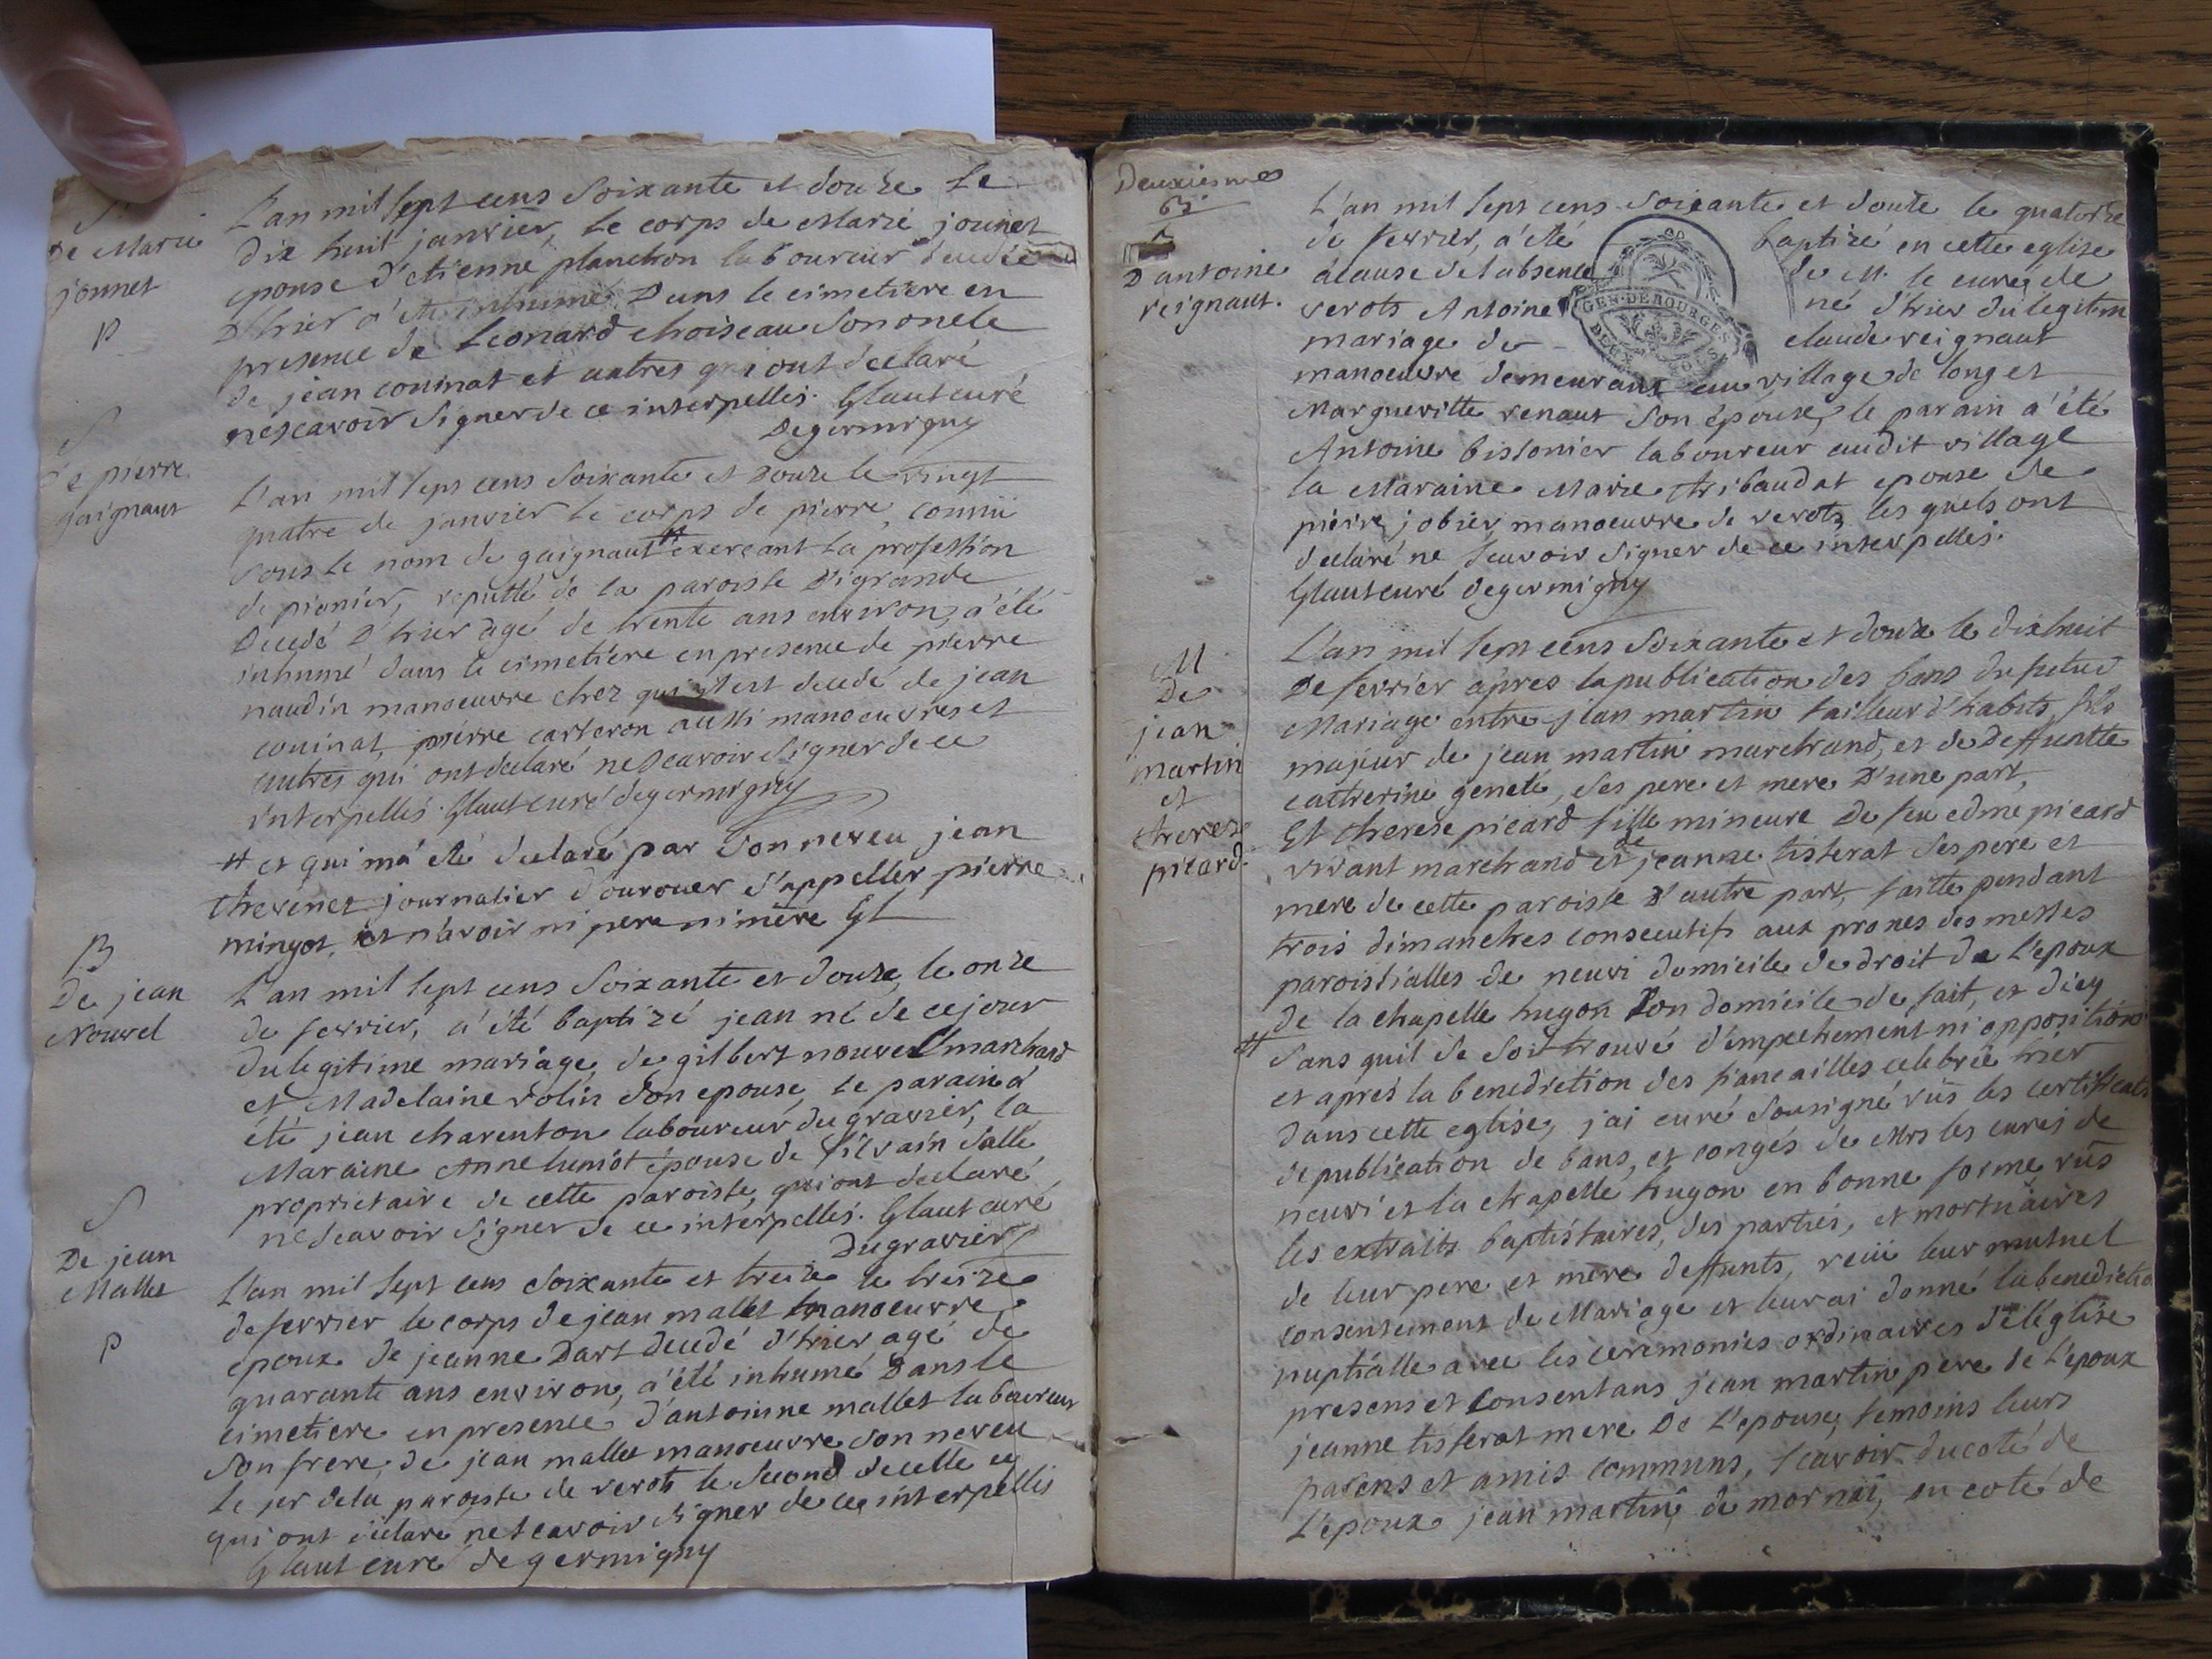 S
De Marie
jonnet
P
L'an mil sept cens Soixante et douze Le
dix huit janvier, le corps de Marie jounet
epouse d'etienne planchon laboureur decedée
D'hier a été inhumé Dans le cimetiere en
presence de Leonard choiseau Son oncle
de jean couinat et autres qui ont declaré
nescavoir signer de ce interpellés. Glaut curé
Degermigny
S
de pierre
gaignaut
L'an mil sept cens Soixante et Douze le vingt
quatre de janvier le corps de pierre, connu
sous le nom de gaignaut # exercant La profession
de pionier, reputté de la paroisse D'igrande
Decedé D'hier agé de trente ans environ, a été
inhumé dans le cimetiere en presence de pierre
naudin manoeuvre chez qui il est decedé de jean
couinat, pierre carteron aussi manoeuvres et
autres qui ont declaré ne scavoir signer de ce
interpellés. Glaut curé degermigny
# et qui m'a été declaré par Son neveu jean
thevenet journalier d'ourouer s'appeller pierre
mingot, et n'avoir ni pere ni mère Gl
B
De jean
Nouvel
L'an mil sept cens Soixante et douze, le onze
de fevrier, a été baptizé jean né de ce jour
du legitime mariage de gilbert nouvel marchand
et Madelaine rolin Son epouse, le parain a
été jean charenton laboureur du gravier, la
Maraine Anne lumot épouse de Silvain Salle
proprietaire de cette paroisse, qui ont declaré
nescavoir signer de ce interpellés. Glaut curé
Dugravier
S
De jean
Mallet
P
L'an mil sept cens Soixante et treize le treize
de fevrier le corps de jean mallet manoeuvre
epoux de jeanne Dart decedé d'hier agé de
quarante ans environ, a été inhumé Dans le
cimetiere en presence d'antoinne mallet laboureur
son frere, de jean mallet manoeuvre son neveu
Le 1er dela paroisse de verots le Second decelle cy
qui ont declaré nescavoir signer de ce interpellés
Glaut curé de germigny
Deuxiesme
B
D'antoine
reignaut.
L'an mil sept cens Soixante et douze le quatorze
de fevrier, a été baptizé en cette eglise
a cause de l'absence de M. le curé de
verots Antoine né d'hier du legitim
mariage de claude reignaut
GEN. DE BOURGES
manoeuvre demeurant au village de long et
Margueritte renaut Son epouse, le parain a été
Antoine bissonier laboureur audit village
la Maraine Marie thibaudat epouse de
pierre jobier manoeuvre de verots les quels ont
declaré ne scavoir signer de ce interpellés.
Glaut curé degermigny
M
De
jean
martin
et
therese
picard.
L'an mil sept cens Soixante et douze le dixhuit
De fevrier aprés la publication des bans du futur
Mariage entre jean martin tailleur d'habits, fils
majeur de jean martin marchand, et de Deffuntte
catherine geneté, ses pere et mere D'une part,
Et therese picard fille mineure De feu edme picard
vivant marchand et de jeanne tisserat ses pere et
mere de cette paroisse D'autre part, faitte pendant
trois dimanches consecutifs aux prones des messes
paroissialles de neuvi domicile de droit de L'epoux
de la chapelle hugon Son domicile de fait, et dicy
# Sans quil se soit trouvé d'empechement ni opposition
et aprés la benediction des fiancailles celebrée hier
dans cette eglise, j'ai curé Sousigné vûs les certificats
de publication de bans, et congés de Mrs les curés de
neuvi et la chapelle hugon en bonne forme, vûs
les extraits baptistaires, des parties, et mortuaires
de leur pere et mere deffunts, reçu leur mutuel
consentement de Mariage et leur ai donné la benedictio
nuptialle avec les ceremonies ordinaires de l'eglise
presens et consentans jean martin pere de l'epoux
jeanne tisserat mere De L'epouse, temoins leurs
parens et amis communs, scavoir du coté de
L'epoux jean martin de mornai, du coté de